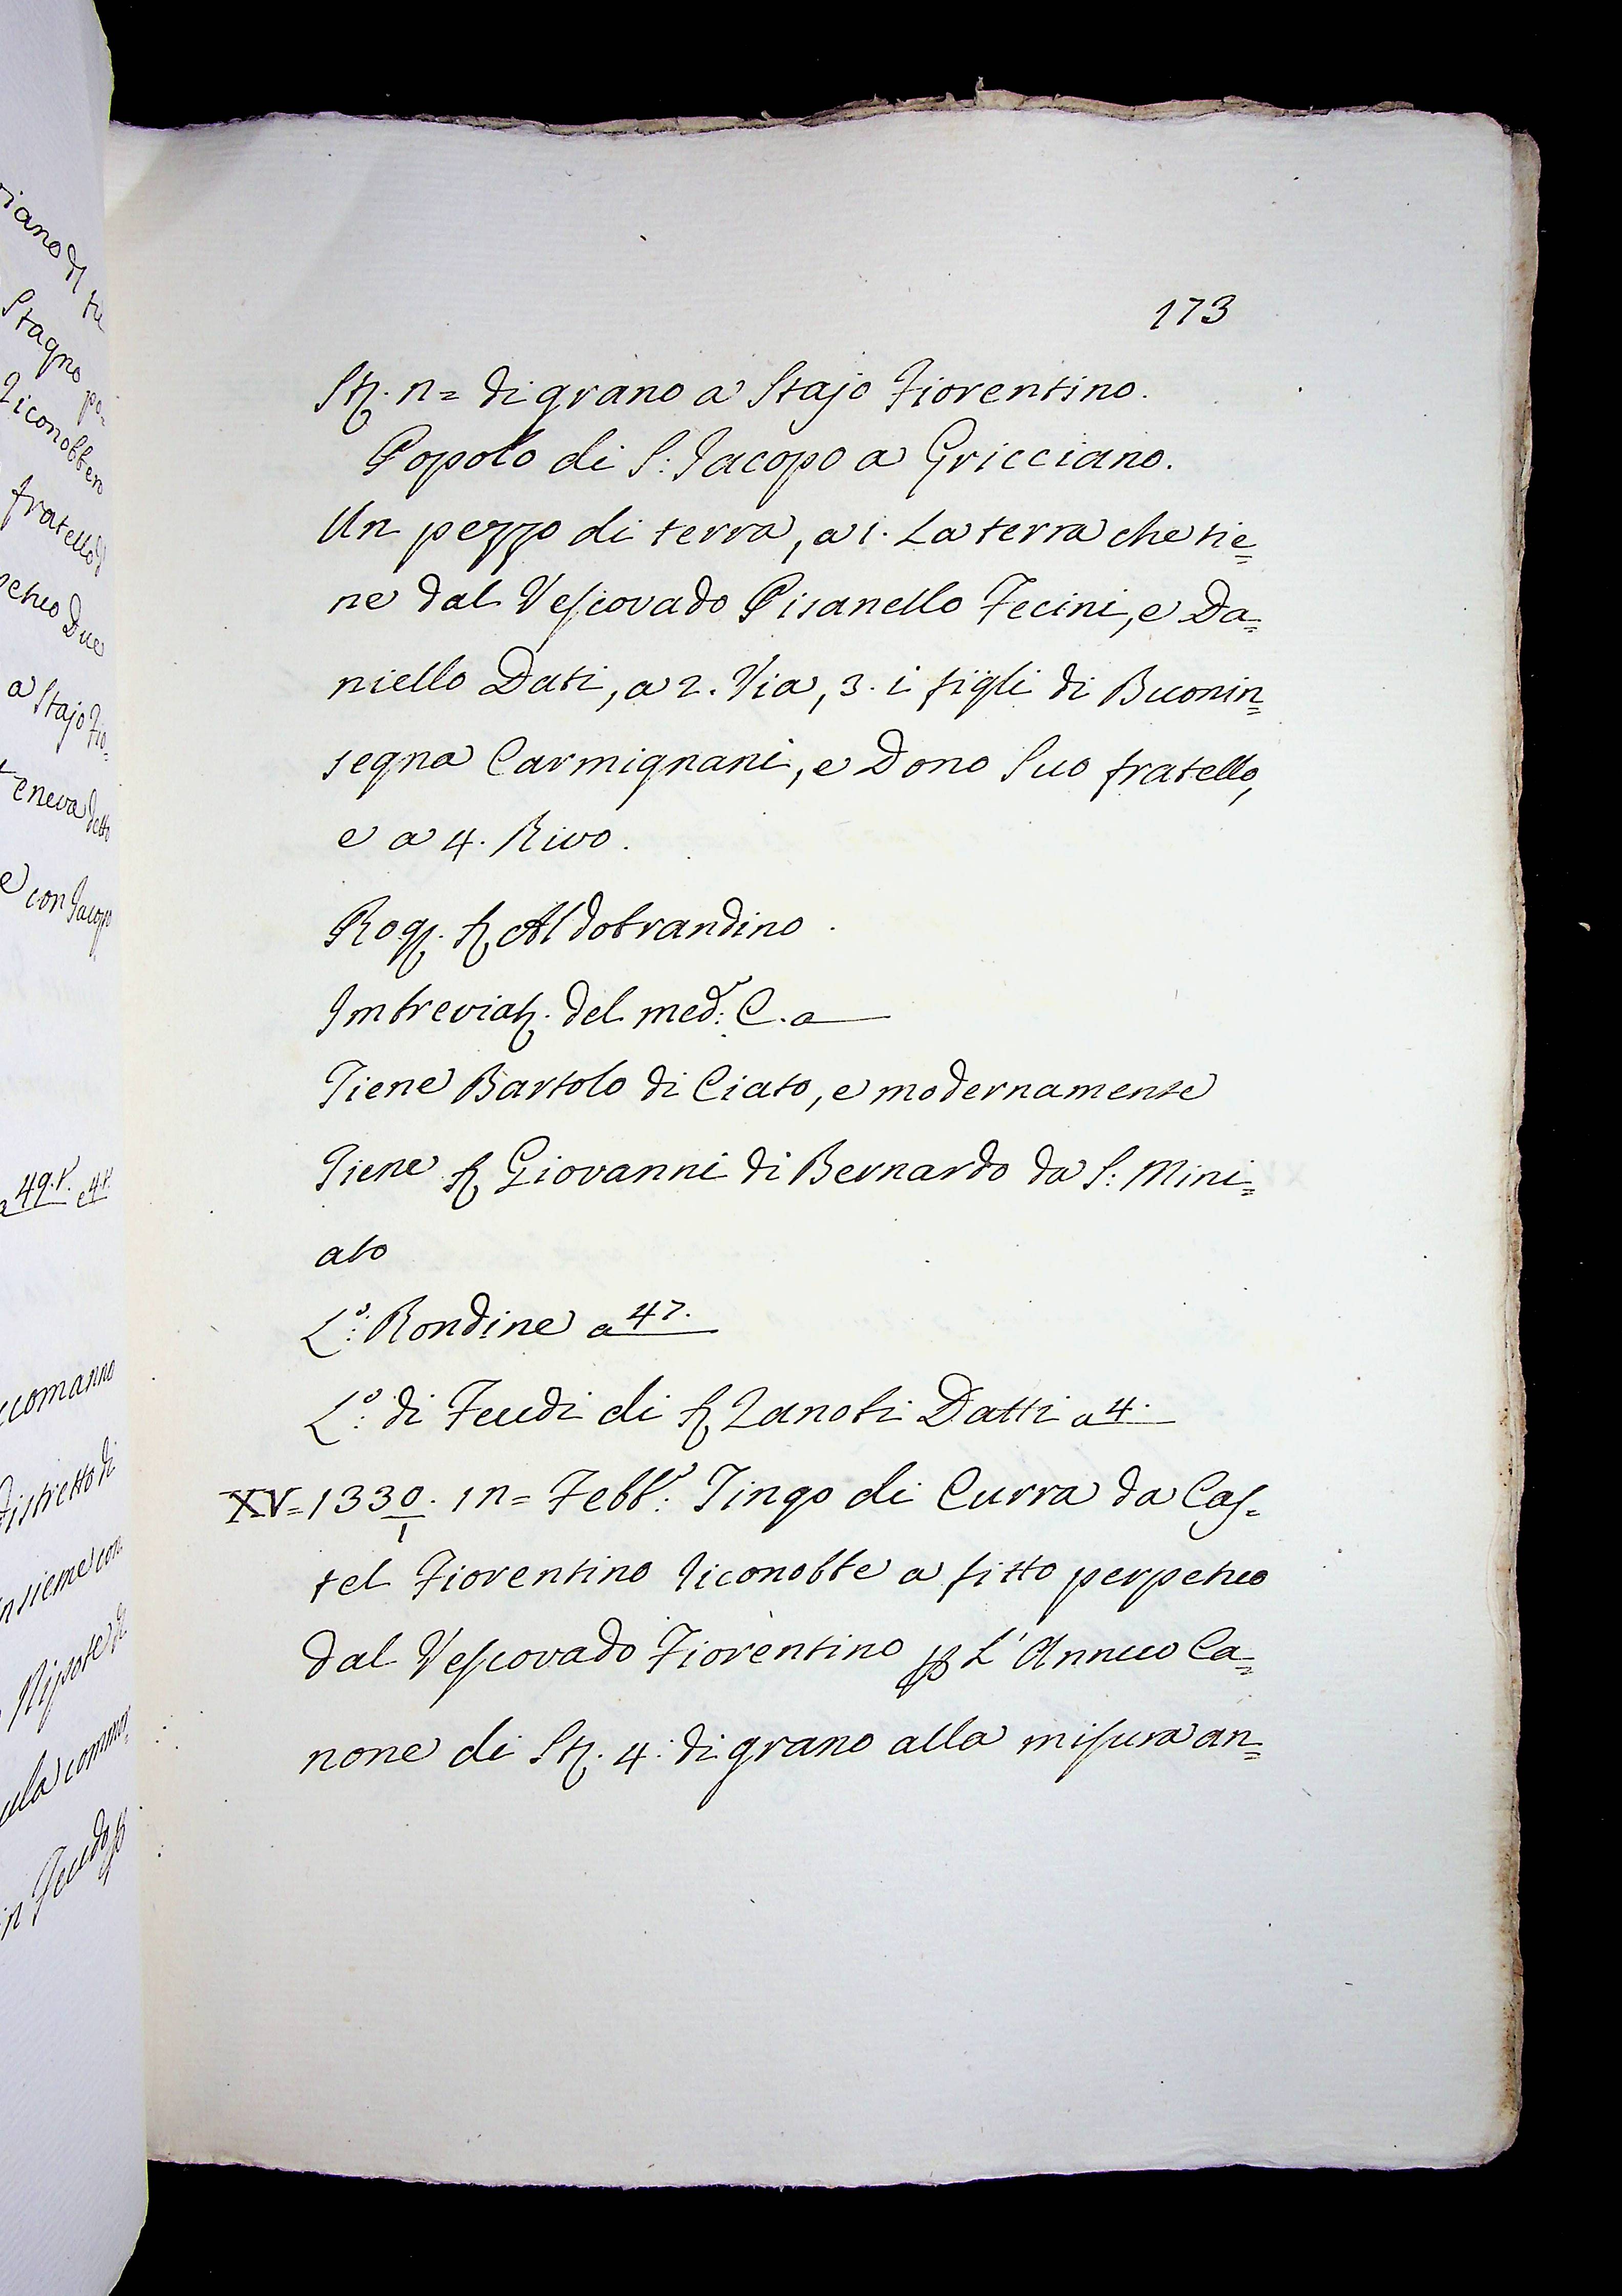 173
Stȝ. n= di grano a Stajo Fiorentino.
Popolo di S: Jacopo a Gricciano.
Un pezzo di terra, a 1. La terra che tie=
ne dal Vescovado Pisanello Fecini, e Da=
niello Dati, a 2. Via, 3. i figli di Buonin=
segna Carmignani, e Dono Suo fratello,
e a 4. Rivo.
Rog. Aldobrandino.
Imbreviaz. del med: C. a
Tiene Bartolo di Ciato, e modernamente
Tiene Giovanni di Bernardo da S: Mini=
ato
Lo: Rondine a 47.
Lo: di Feudi di Zanobi Datti a 4.
XV= 1330/1. 1n= Febb: Tingo di Curra da Cas=
tel Fiorentino riconobbe a fitto perpetuo
dal Vescovado Fiorentino p L'Annuo Ca=
none di Stȝ. 4: di grano alla misura an=
Stagno po=
riconobbero
fratello
petuo Due
a Stajo Fio=
teneva detto
e con Jacopo
a 49.t. e 4t.
ccomanno
Distretto di
insieme con
Nipote di
in Feudo p